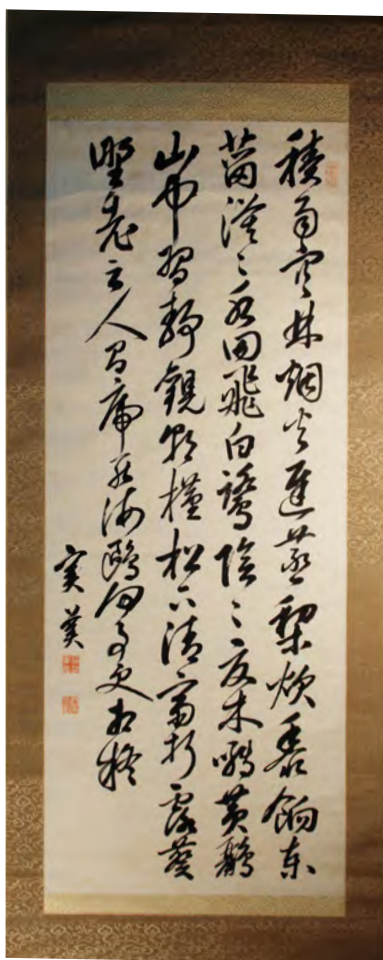 積雨空林烟火遲蒸藜炊黍餉東
菑漠〻水田飛白鷺陰〻夏木囀黃鸝
山中習靜觀朝槿松下清齋折露葵
野老与人爭席罷海鷗何事更相疑
實美